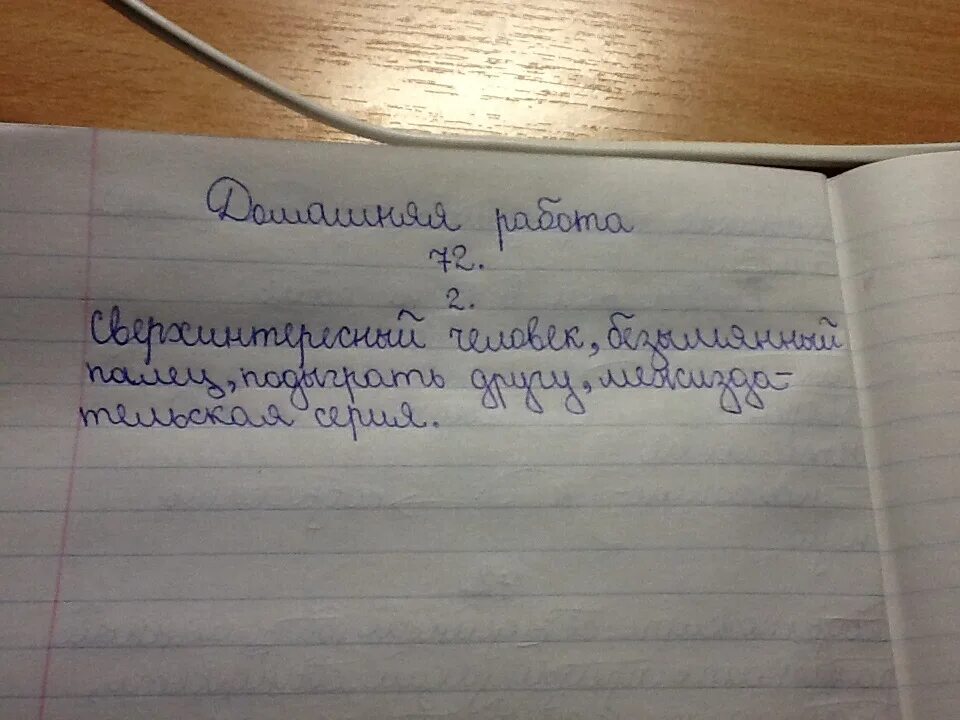 Домашняя работа
72.
2.
Сверхинтересный человек, безымянный
палец, подыграть другу, межизда-
тельская серия.